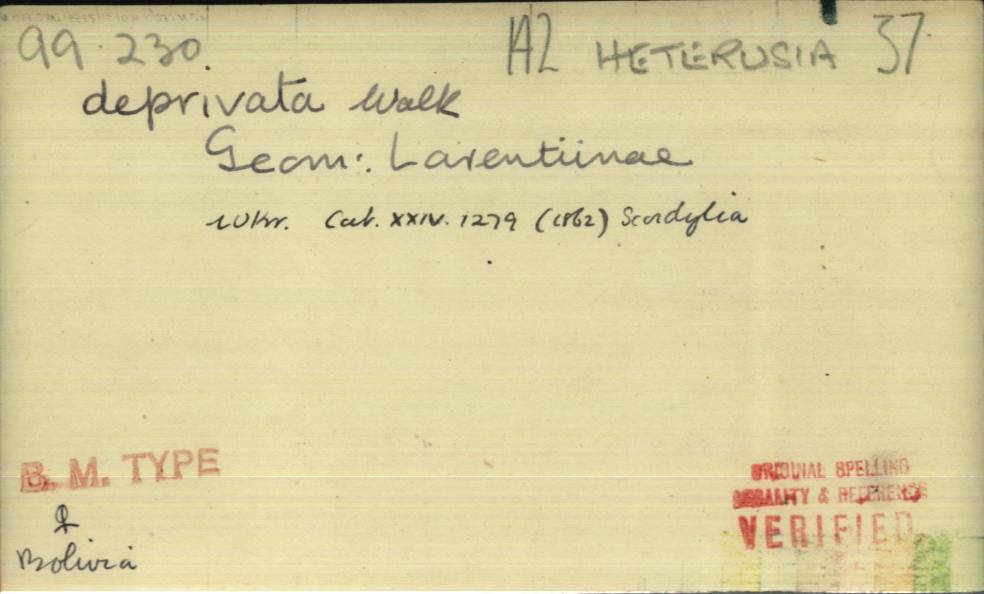 99.230. 142 HETERUSIA 37
deprivata Walk
Geom:. Larentiinae
Wkr. Cat. XXIV. 1279 (1862) Scordylia
B. M. TYPE
♀
Bolivia
ORIGINAL SPELLING
LOCALITY & REFERENCE
VERIFIED